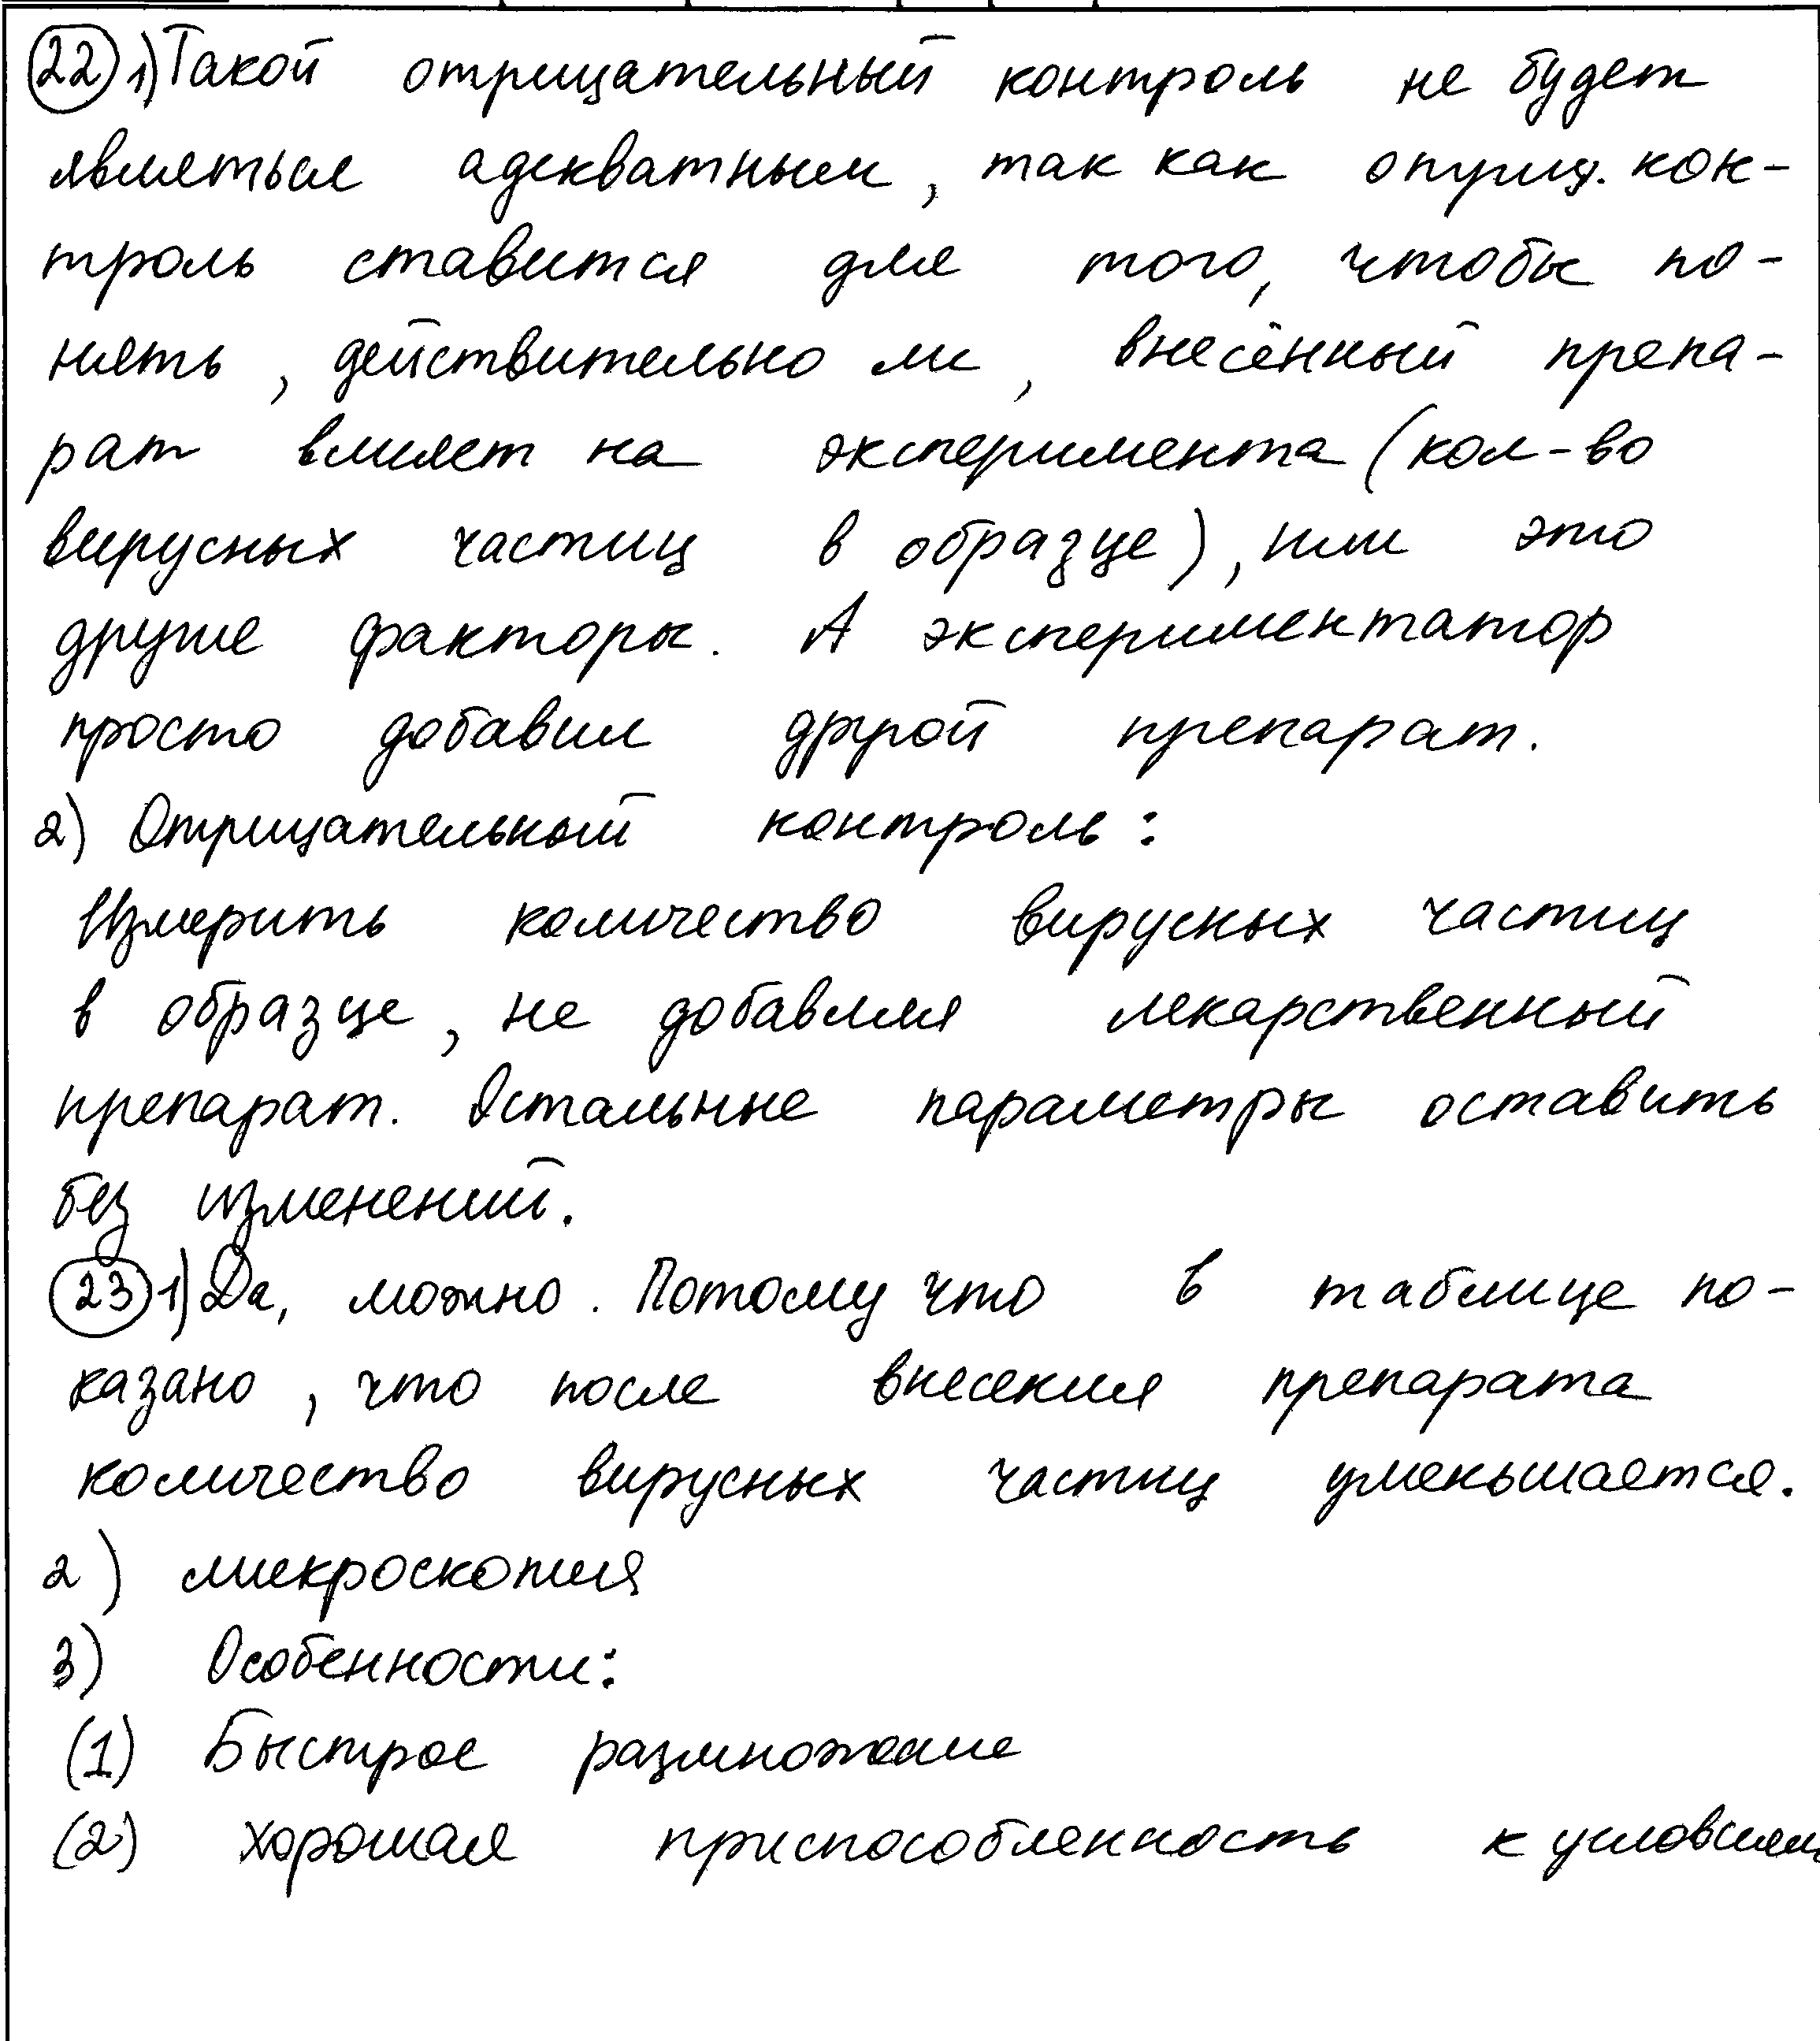 22 1) Такой отрицательный контроль не будет
являться адекватным, так как отриц. кон-
троль ставится для того, чтобы по-
нять, действительно ли, внесённый препа-
рат влияет на эксперимента (кол-во
вирусных частиц в образце), или это
другие факторы. А экспериментатор
просто добавил другой препарат.
2) Отрицательный контроль:
Измерить количество вирусных частиц
в образце, не добавляя лекарственный
препарат. Остальные параметры оставить
без изменений.
23 1) Да, можно. Потому что в таблице по-
казано, что после внесения препарата
количество вирусных частиц уменьшается.
2) микроскопия
3) Особенности:
(1) Быстрое размножение
(2) хорошая приспособленность к условиям